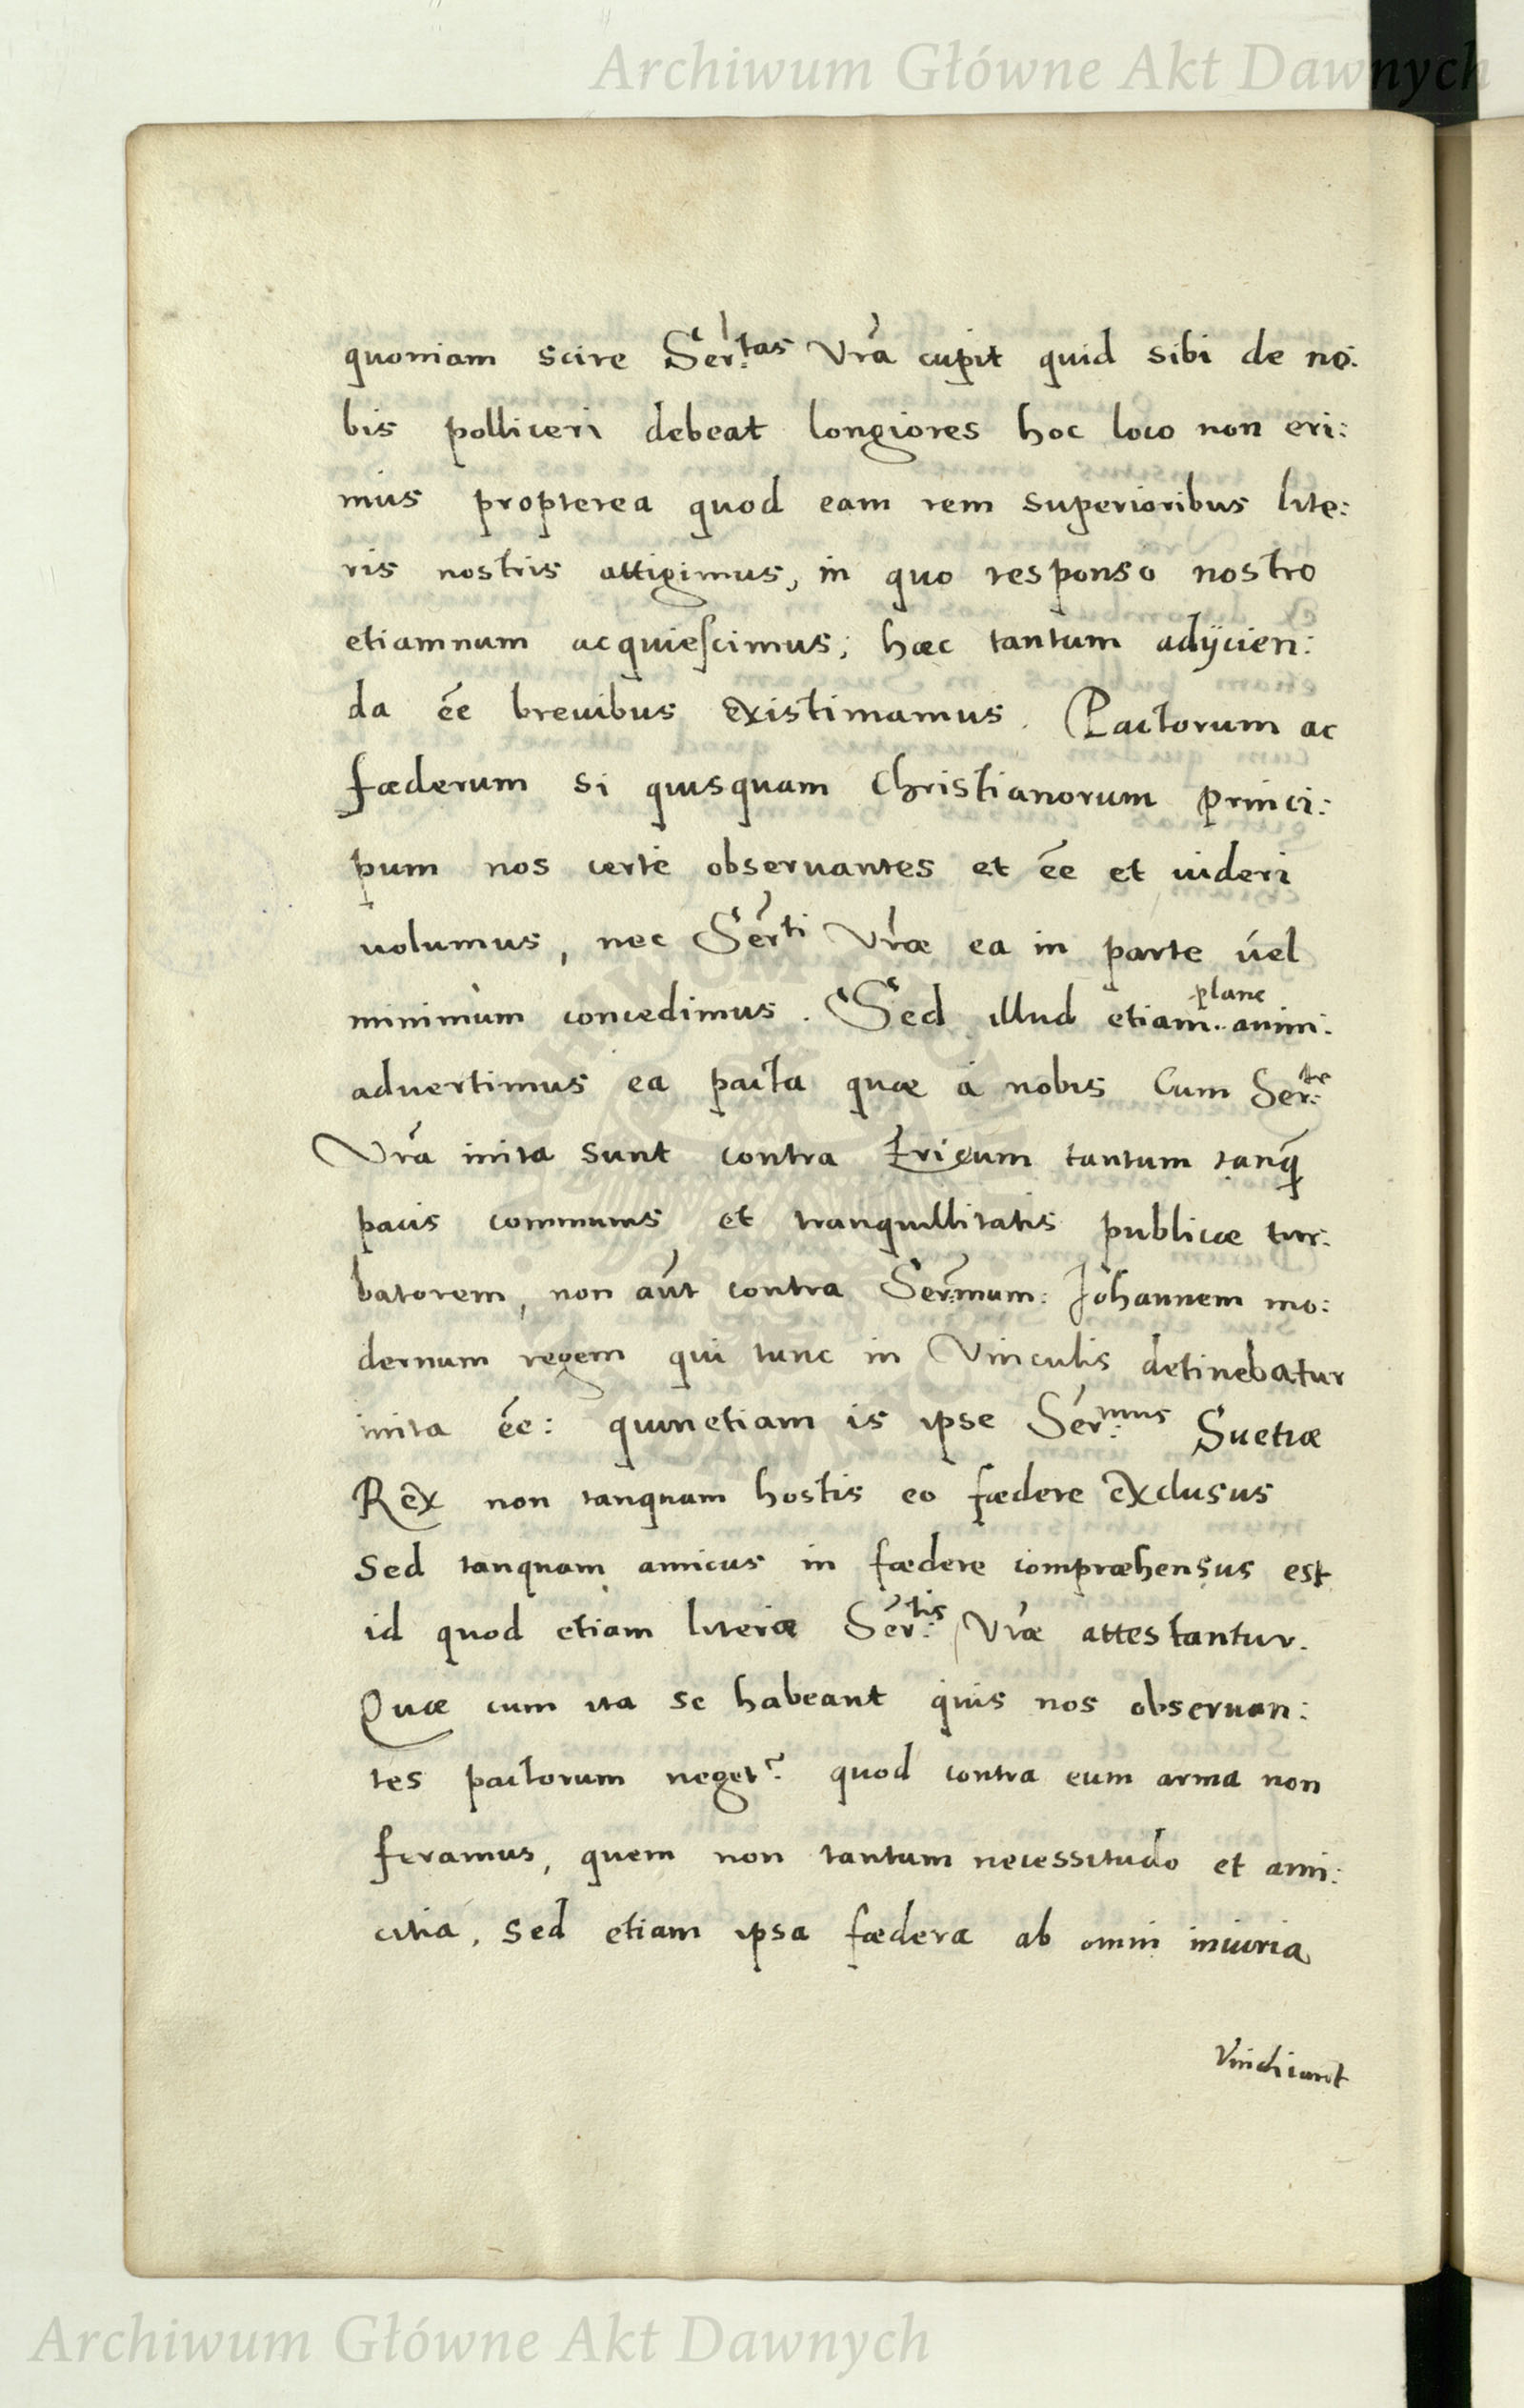 Archiwum Główne Akt Dawnych
quoniam scire Ser:tas Vra cupit quid sibi de no:
bis polliceri debeat longiores hoc loco non eri:
mus propterea quod eam rem superioribus lite:
ris nostris attigimus, in quo responso nostro
etiamnum acquiescimus; hæc tantum adijcien:
da ēe breuibus existimamus. Pactorum ac
fæderum si quisquam Christianorum princi:
pum nos certè obseruantes et ēe et uideri
uolumus, nec Serti Vræ ea in parte uel
minimùm concedimus. Sed illud etiam plane animi:
aduertimus ea pacta quæ à nobis Cum Ser:te
Vrā inita sunt contra Ericum tantum tanq̃
pacis communis et tranquillitatis publicæ tur:
batorem, non aūt contra Ser:mum: Johannem mo:
dernum regem qui tunc in Vinculis detinebatur
inita ēe: quinetiam is ipse Ser:mus Suetiæ
Rex non tanquam hostis eo fædere exclusus
Sed tanquam amicus in fædere compræhensus est
id quod etiam literæ Ser:tis Vræ attestantur.
Quæ cum ita se habeant quis nos obseruan:
tes pactorum neget? quod contra eum arma non
feramus, quem non tantum necessitudo et ami:
citia, sed etiam ipsa fædera ab omni iniuria
Vindicant
Archiwum Główne Akt Dawnych